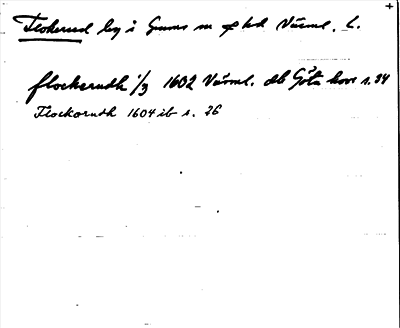 Flokerud by i Grums sn o hd Värml. L.
flockerudh 1/3 1602 Värml. db Göta hovr s. 34
Flockorudh 1604 ib s. 26